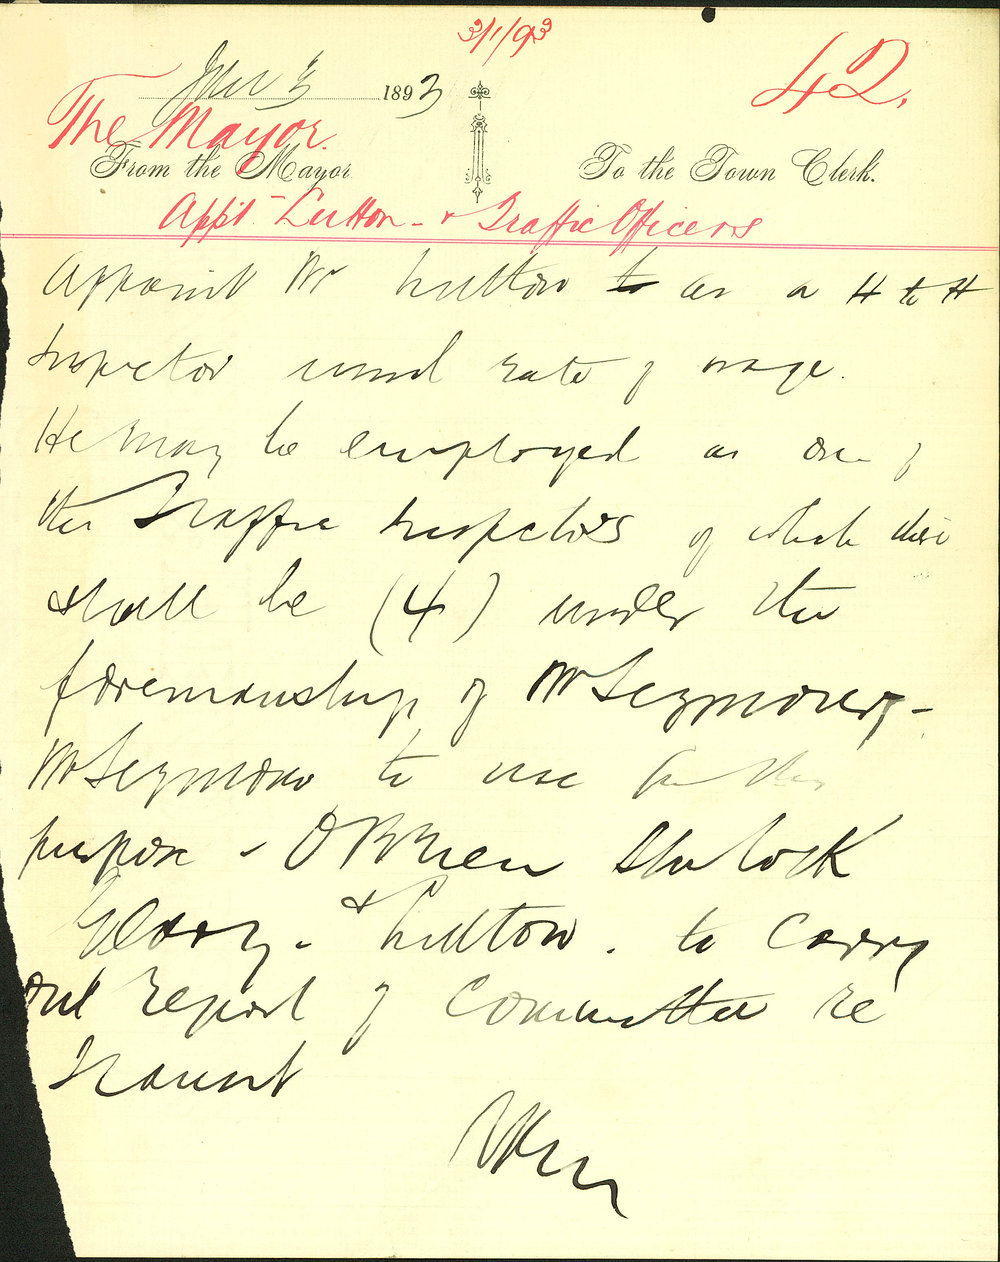 3/1/93
42.
Jan 3 1893
The Mayor.
From the Mayor To the Town Clerk.
App't - Lutton - & Traffic Officers
Appoint Mr Lutton to as a H to H
Inspector usual rate of wage.
He may be employed as one of
the Traffic Inspectors of which there
shall be (4) under the
foremanship of Mr Seymour -
Mr Seymour to use for this
purpose - O'Brien
& Lutton. to carry
out report of Committee re